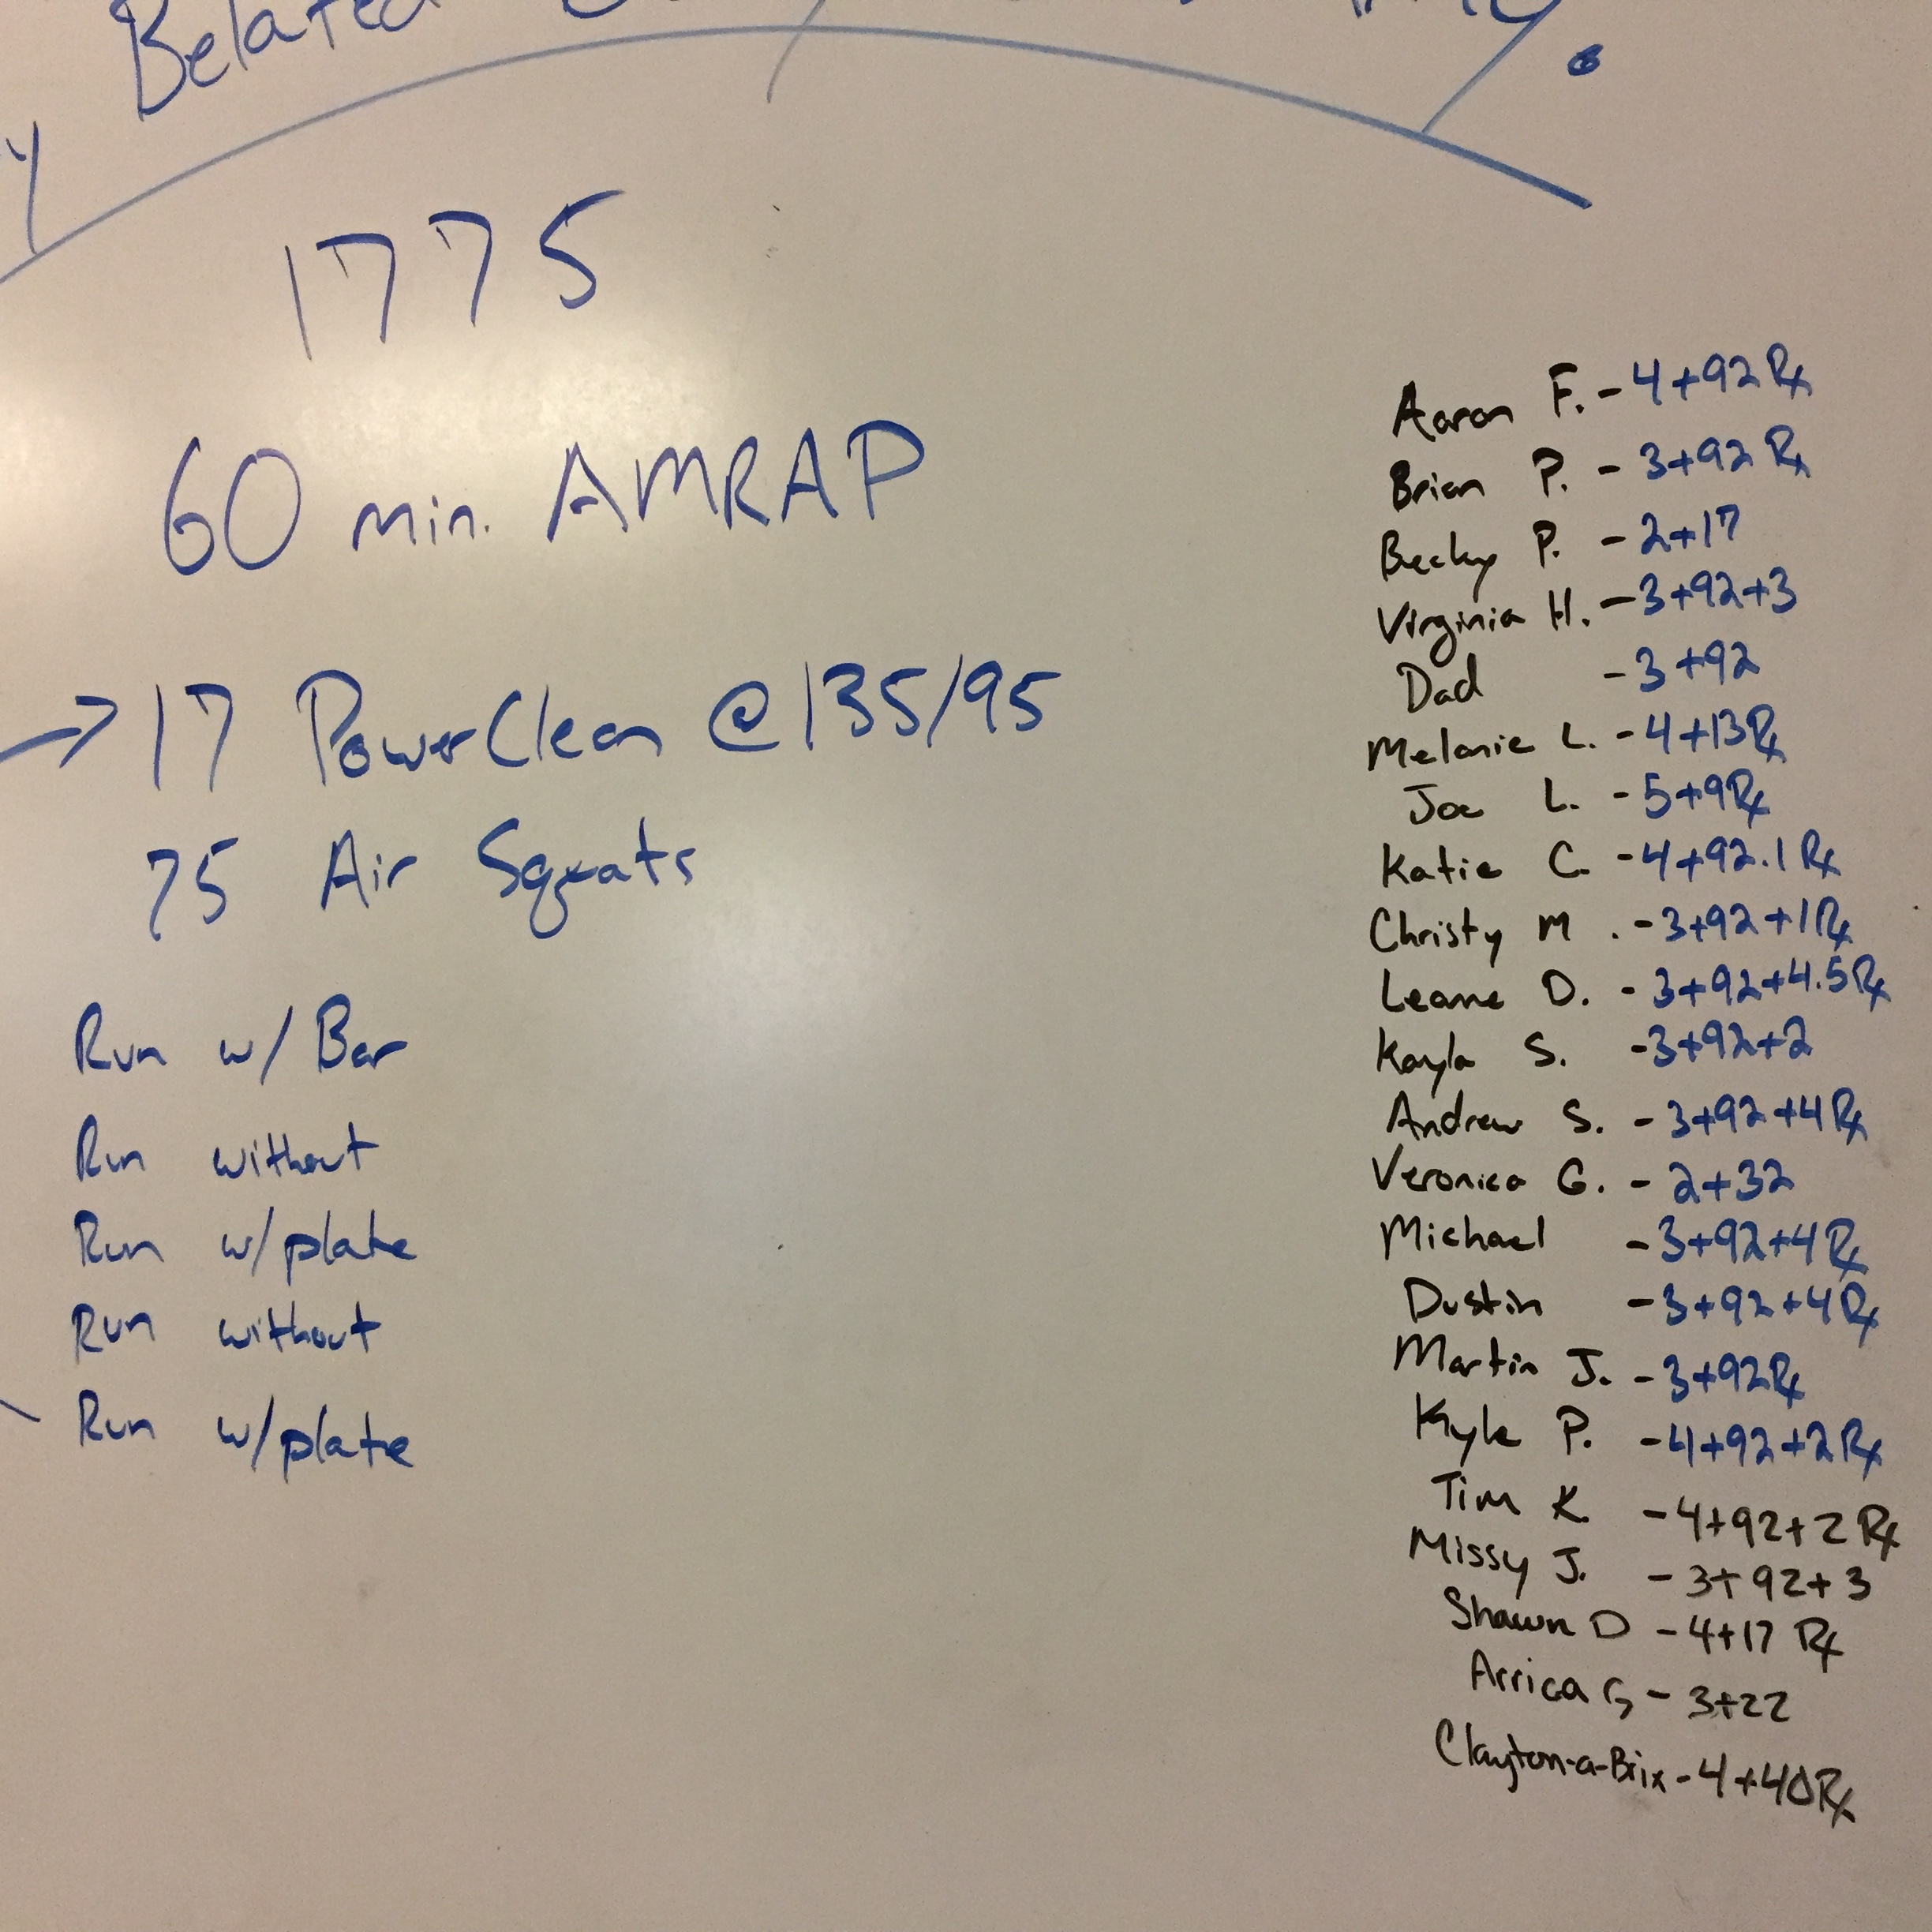 Belated
1775
60 min. AMRAP
→ 17 PowerClean @ 135/95
75 Air Squats
Run w/ Bar
Run without
Run w/plate
Run without
Run w/plate
Aaron F. - 4+92 Rx
Brian P. - 3+92 Rx
Becky P. - 2+17
Virginia H. - 3+92+3
Dad - 3+92
Melanie L. - 4+13 Rx
Joe L. - 5+9 Rx
Katie C. - 4+92.1 Rx
Christy M. - 3+92+1 Rx
Leanne D. - 3+92+4.5 Rx
Kayla S. - 3+92+2
Andrew S. - 3+92+4 Rx
Veronica G. - 2+32
Michael - 3+92+4 Rx
Dustin - 3+92+4 Rx
Martin J. - 3+92 Rx
Kyle P. - 4+92+2 Rx
Tim K. - 4+92+2 Rx
Missy J. - 3+92+3
Shawn D - 4+17 Rx
Arrica G - 3+22
Clayton-a-Brix - 4+40 Rx